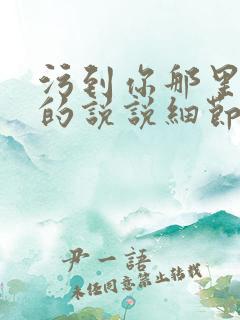 污到你那里
的说说细节
尹一語
未经同意禁止转载